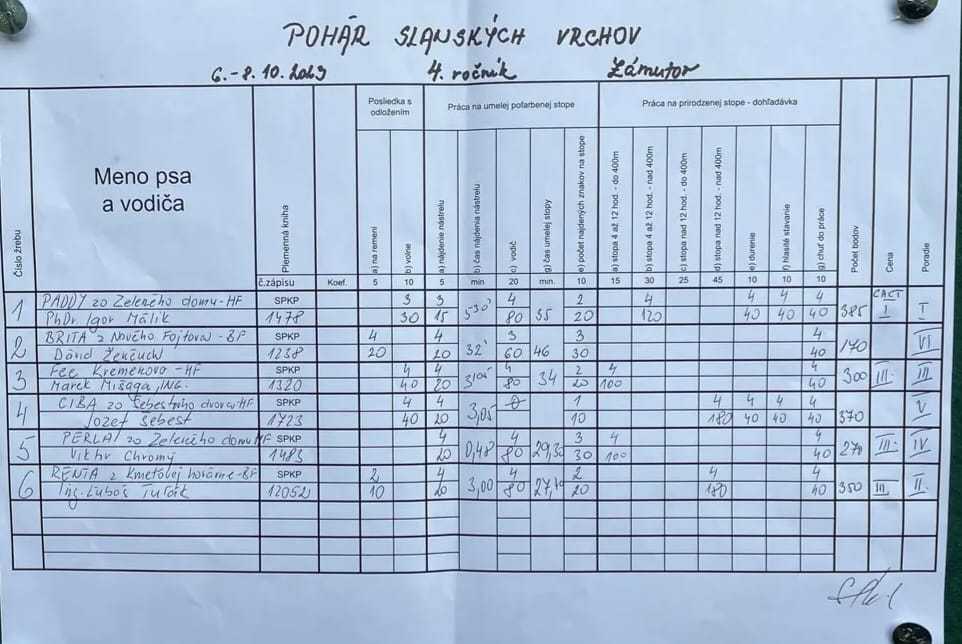 POHÁR SLANSKÝCH VRCHOV
6.-8.10.2023 4. ročník Zámutov
Posliedka s odložením Práca na umelej pofarbenej stope Práca na prirodzenej stope - dohľadávka
Číslo žrebu Meno psa a vodiča Plemenná kniha a) na remeni b) voľne a) nájdenie nástrelu b) čas nájdenia nástrelu c) vodič g) čas umelej stopy e) počet najdených znakov na stope a) stopa 4 až 12 hod. - do 400m b) stopa 4 až 12 hod. - nad 400m c) stopa nad 12 hod. - do 400m d) stopa nad 12 hod. - nad 400m e) durenie f) hlasité stavanie g) chuť do práce Počet bodov Cena Poradie
č.zápisu Koef. 5 10 5 min 20 min. 10 15 30 25 45 10 10 10
1 PADDY zo Zeleného domu-HF SPKP 3 3 530 4 2 4 4 4 4 385 CACT I
PhDr. Igor Málik 1478 30 15 80 35 20 120 40 40 40 I
2 BRITA z Nového Fojtova-BF SPKP 4 4 32 3 3 4 170 VI
Dávid 1238 20 20 60 46 30 40
3 Fee Kremenovo-HF SPKP 4 4 4 34 2 4 4 300 III. III
Marek Mišaga, ING. 1320 40 20 80 20 100 40
4 CIBA zo Šebestného dvora-HF SPKP 4 4 3,05 0 1 4 4 4 4 370 V
Jozef Šebest 1723 40 20 10 180 40 40 40
5 PERLA zo Zeleného domu HF SPKP 4 0,48 4 29,30 3 4 4 270 III. IV
Viktor Chromý 1483 20 80 30 100 40
6 RENTA z Kmeťovej horárne-BF SPKP 2 4 3,00 4 2 4 4 350 III II.
Ing. Ľuboš Turčík 12052 10 20 80 20 180 40